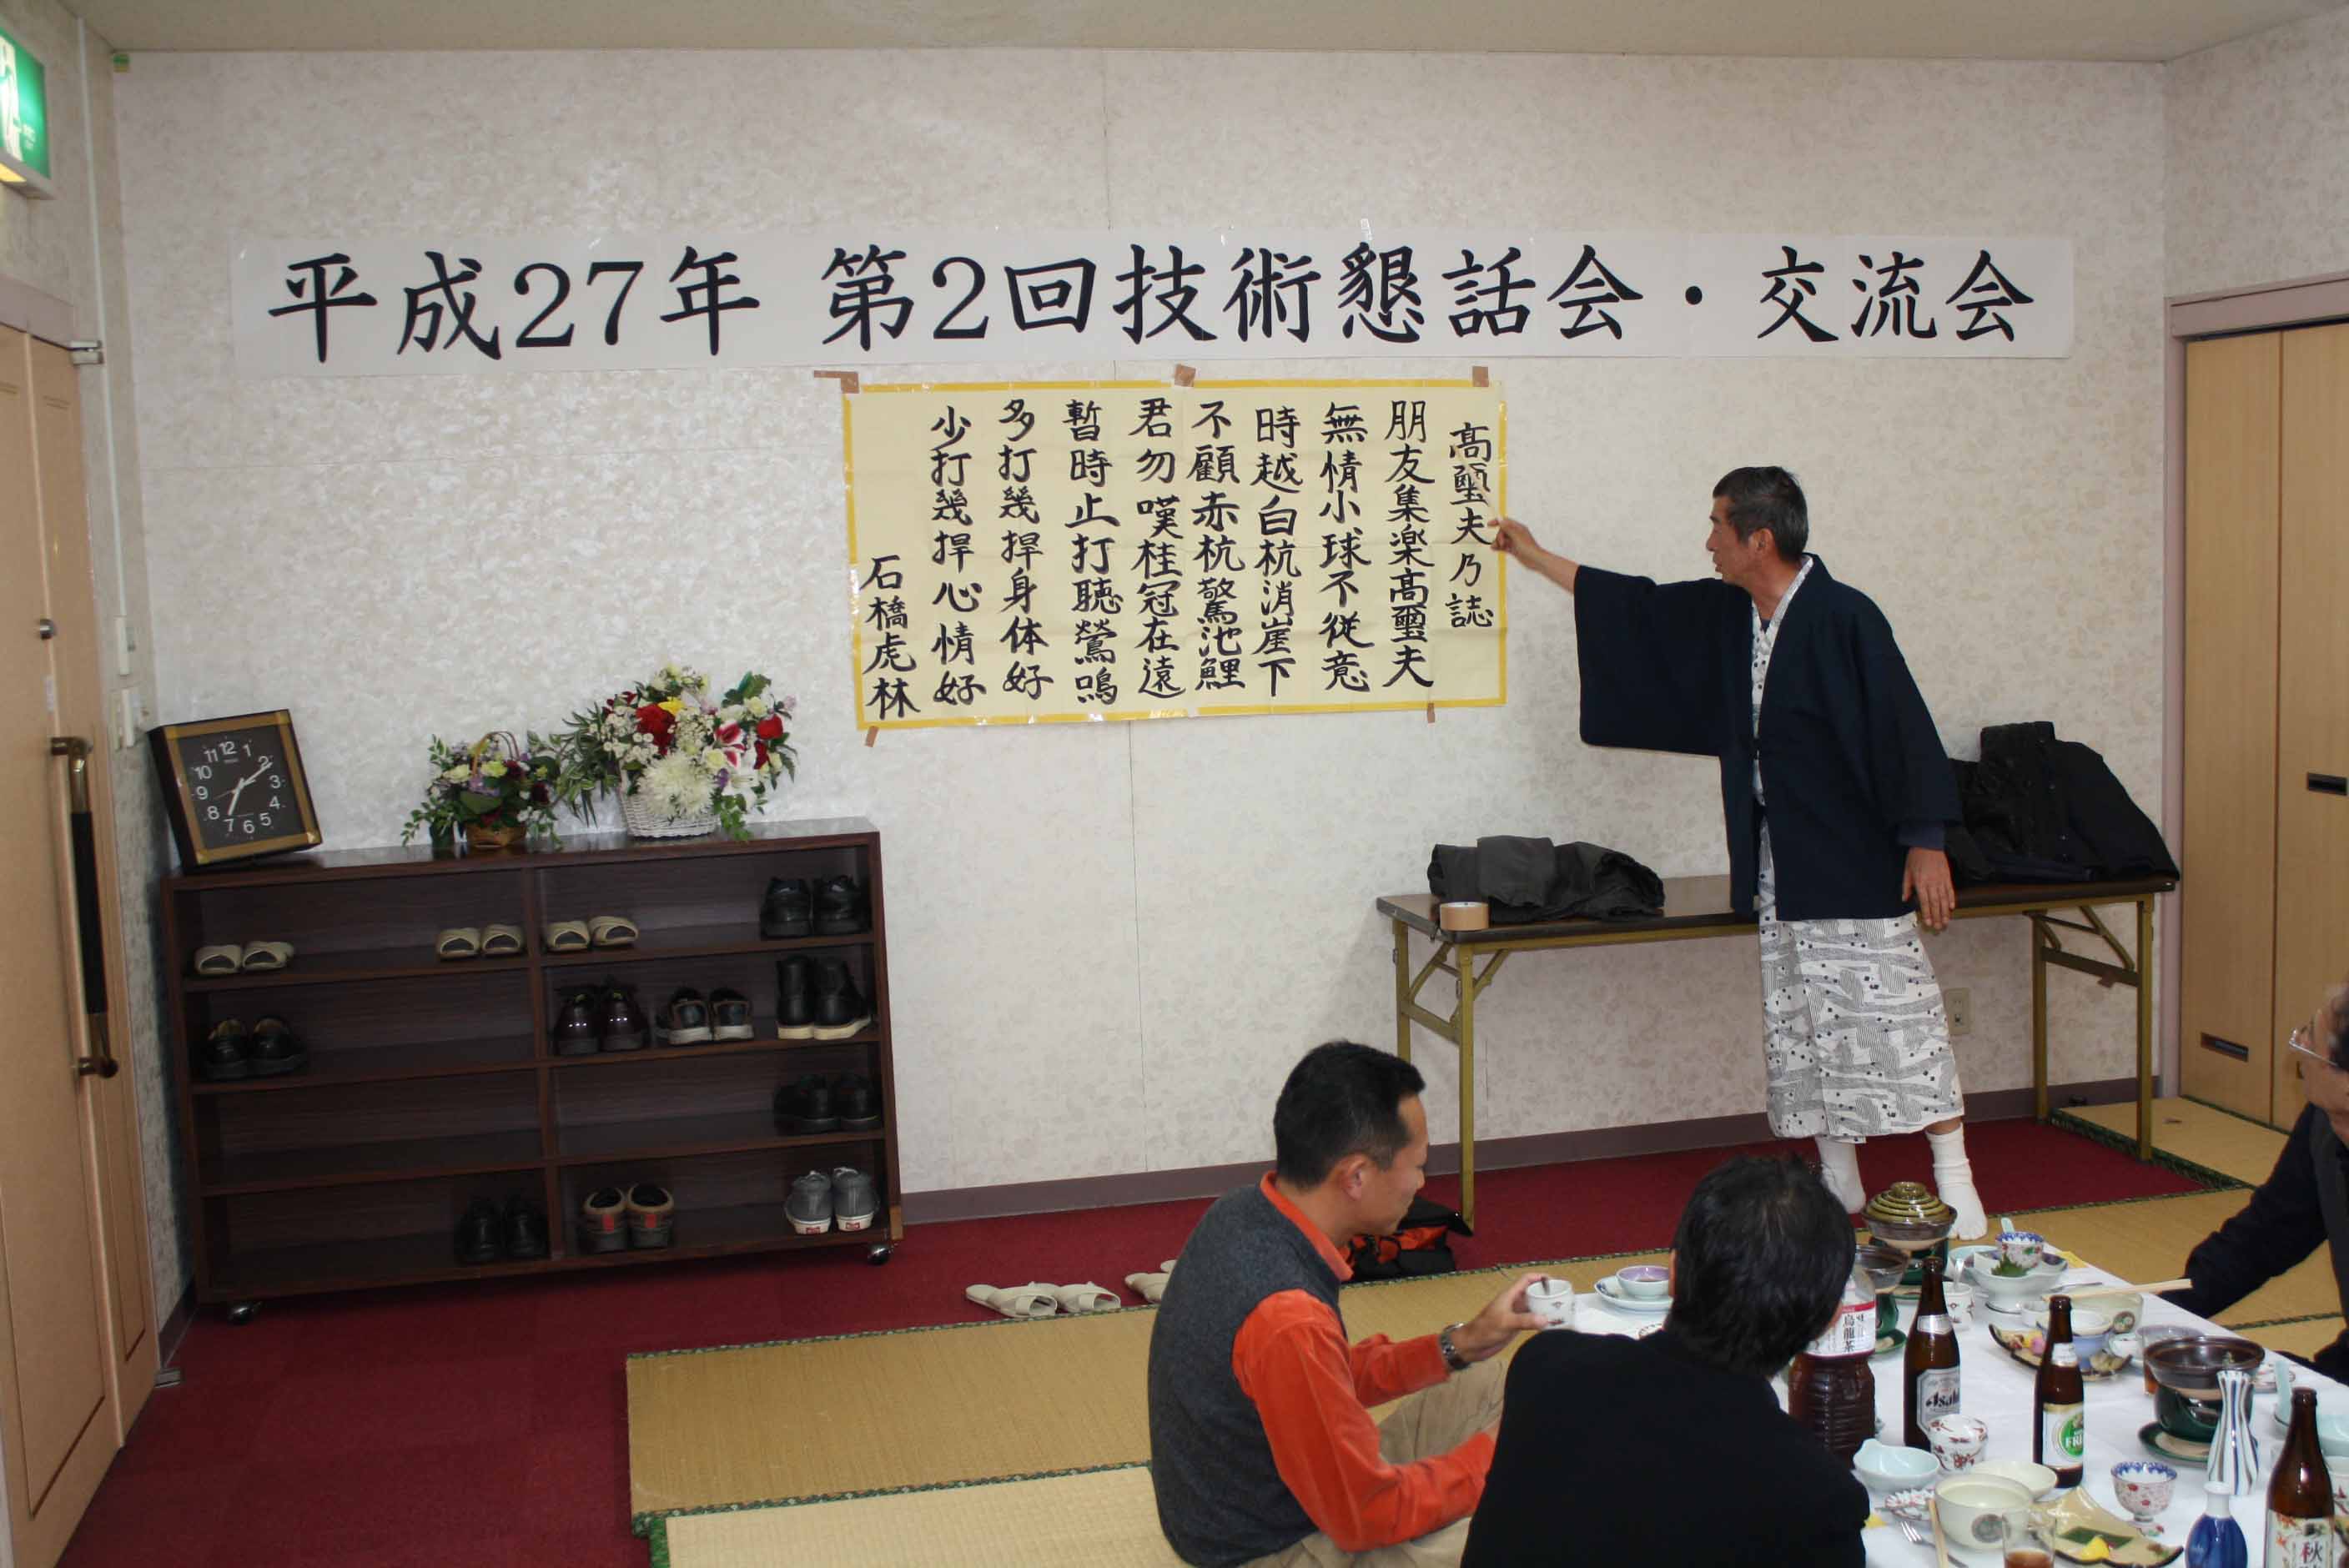 平成27年 第2回技術懇話会・交流会
高璽夫乃誌
朋友集楽高璽夫
無情小球不従意
時越白杭消崖下
不顧赤杭驚池鯉
君勿嘆桂冠在遠
暫時止打聴鶯鳴
多打幾捍身体好
少打幾捍心情好
石橋虎林
11 12 1
10 2
9 3
8 4
7 6 5
烏龍茶
Asahi
秋